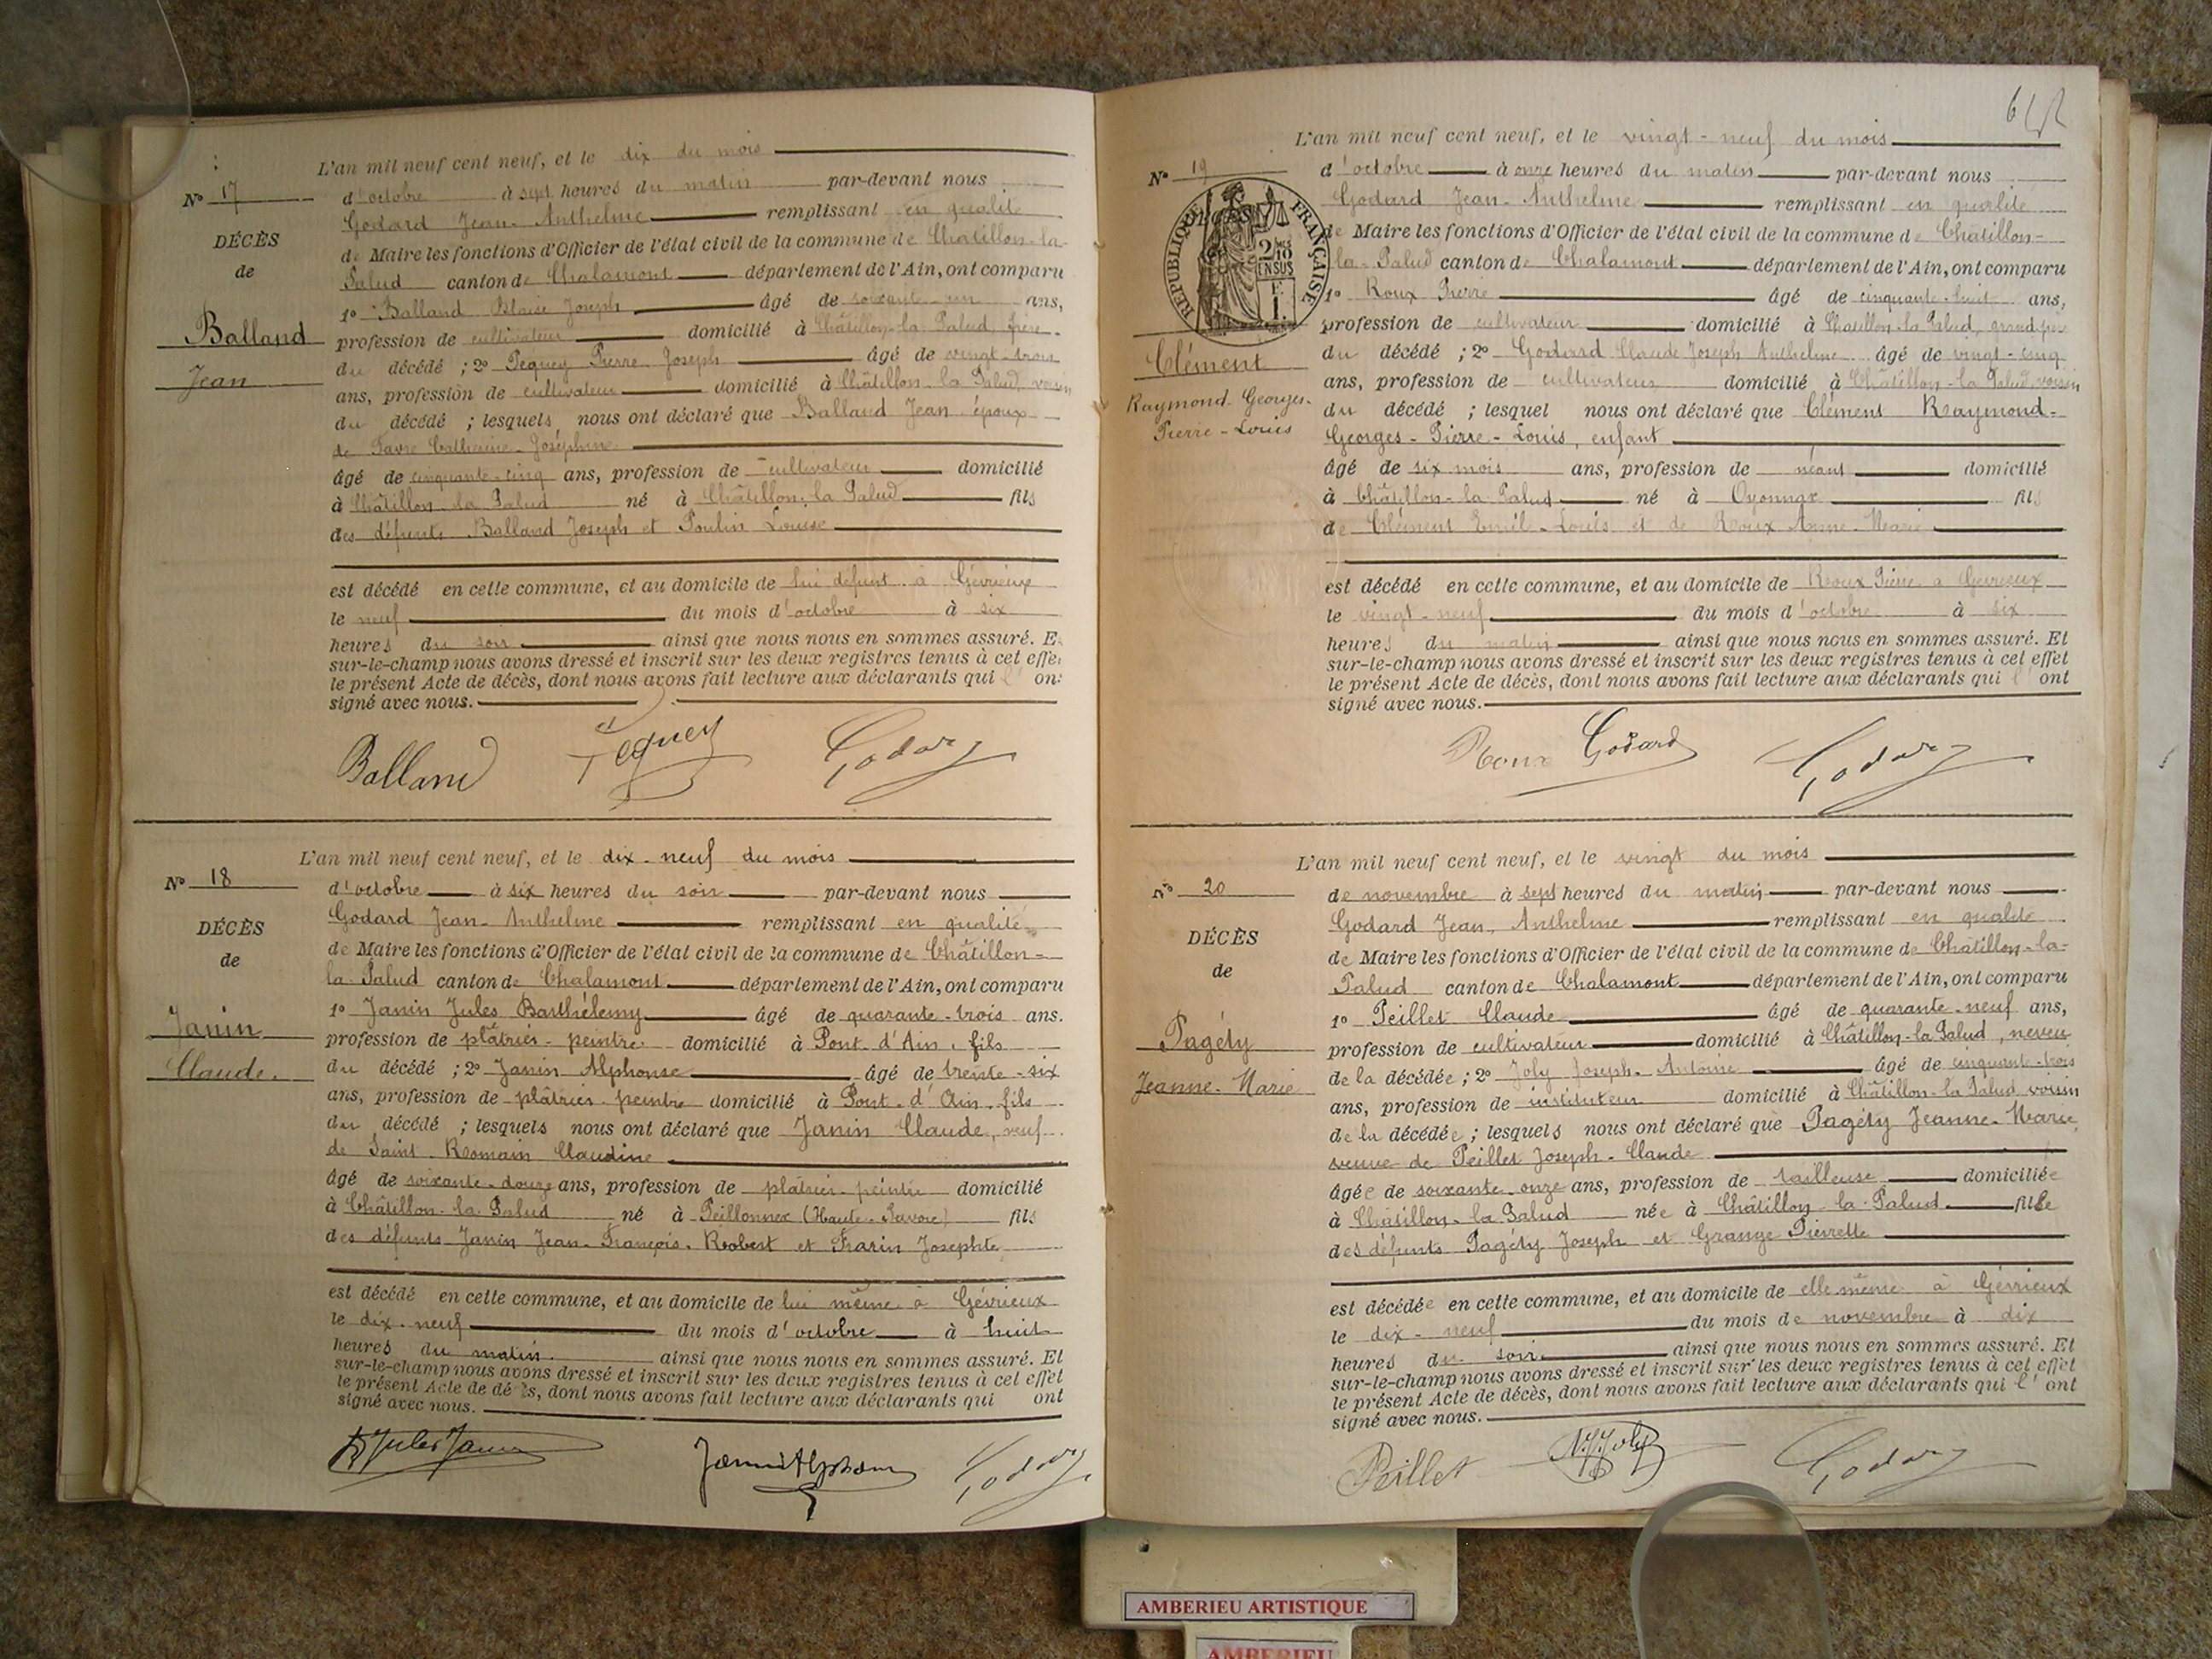 L'an mil neuf cent neuf, et le dix du mois
No 17
d'octobre à sept heures du matin par-devant nous
Godard Jean-Anthelme remplissant en qualité
DÉCÈS
de
Balland
Jean
de Maire les fonctions d'Officier de l'état civil de la commune de Châtillon-la-
Palud canton de Chalamont département de l'Ain, ont comparu
1o Balland Blaise Joseph âgé de soixante-un ans,
profession de cultivateur domicilié à Châtillon-la-Palud, frère
du décédé ; 2o Pequey Pierre Joseph âgé de vingt-trois
ans, profession de cultivateur domicilié à Châtillon-la-Palud, voisin
du décédé ; lesquels nous ont déclaré que Balland Jean époux
de Favre Catherine-Joséphine
âgé de cinquante-cinq ans, profession de cultivateur domicilié
à Châtillon-la-Palud né à Châtillon-la-Palud fils
des défunts Balland Joseph et Poulin Louise
est décédé en cette commune, et au domicile de lui défunt à Gévrieux
le neuf du mois d'octobre à six
heures du soir ainsi que nous nous en sommes assuré. E
sur-le-champ nous avons dressé et inscrit sur les deux registres tenus à cet effe
le présent Acte de décès, dont nous avons fait lecture aux déclarants qui l' on
signé avec nous.
Balland Pequey Godard
L'an mil neuf cent neuf, et le dix-neuf du mois
No 18
d'octobre à six heures du soir par-devant nous
Godard Jean-Anthelme remplissant en qualité
DÉCÈS
de
Janin
Claude.
de Maire les fonctions d'Officier de l'état civil de la commune de Châtillon-
la-Palud canton de Chalamont département de l'Ain, ont comparu
1o Janin Jules Barthélemy âgé de quarante-trois ans.
profession de plâtrier-peintre domicilié à Pont-d'Ain, fils
du décédé ; 2o Janin Alphonse âgé de trente-six
ans, profession de plâtrier-peintre domicilié à Pont-d'Ain, fils
du décédé ; lesquels nous ont déclaré que Janin Claude, veuf
de Saint-Romain Claudine
âgé de soixante-douze ans, profession de plâtrier-peintre domicilié
à Châtillon-la-Palud né à Peillonnex (Haute-Savoie) fils
des défunts Janin Jean-François-Robert et Frarin Josephte
est décédé en cette commune, et au domicile de lui même à Gévrieux
le dix-neuf du mois d'octobre à huit
heures du matin. ainsi que nous nous en sommes assuré. Et
sur-le-champ nous avons dressé et inscrit sur les deux registres tenus à cet effet
le présent Acte de décès, dont nous avons fait lecture aux déclarants qui ont
signé avec nous.
Jules Janin Janin Alphonse Godard
L'an mil neuf cent neuf, et le vingt-neuf du mois
No 19
d'octobre à onze heures du matin par-devant nous
Godard Jean-Anthelme remplissant en qualité
RÉPUBLIQUE FRANÇAISE
Clément
Raymond-Georges-
Pierre-Louis
de Maire les fonctions d'Officier de l'état civil de la commune de Châtillon-
la-Palud canton de Chalamont département de l'Ain, ont comparu
1o Roux Pierre âgé de cinquante-huit ans,
profession de cultivateur domicilié à Châtillon-la-Palud, grand père
du décédé ; 2o Godard Claude Joseph Anthelme âgé de vingt-cinq
ans, profession de cultivateur domicilié à Châtillon-la-Palud, voisin
du décédé ; lesquel nous ont déclaré que Clément Raymond-
Georges-Pierre-Louis, enfant
âgé de six mois ans, profession de néant domicilié
à Châtillon-la-Palud né à Oyonnax fils
de Clément Emile-Louis et de Roux Anne-Marie
est décédé en cette commune, et au domicile de Roux Pierre à Gevrieux
le vingt-neuf du mois d'octobre à six
heures du matin ainsi que nous nous en sommes assuré. Et
sur-le-champ nous avons dressé et inscrit sur les deux registres tenus à cet effet
le présent Acte de décès, dont nous avons fait lecture aux déclarants qui l' ont
signé avec nous.
Roux Godard Godard
L'an mil neuf cent neuf, et le vingt du mois
No 20
de novembre à sept heures du matin par-devant nous
Godard Jean-Anthelme remplissant en qualité
DÉCÈS
de
Pagéty
Jeanne-Marie
de Maire les fonctions d'Officier de l'état civil de la commune de Châtillon-la-
Palud canton de Chalamont département de l'Ain, ont comparu
1o Peillet Claude âgé de quarante-neuf ans,
profession de cultivateur domicilié à Châtillon-la-Palud, neveu
de la décédée ; 2o Joly Joseph-Antoine âgé de cinquante-trois
ans, profession de instituteur domicilié à Châtillon-la-Palud voisin
de la décédée ; lesquels nous ont déclaré que Pagéty Jeanne-Marie,
veuve de Peillet Joseph-Claude
âgée de soixante-onze ans, profession de tailleuse domiciliée
à Châtillon-la-Palud née à Châtillon-la-Palud fille
des défunts Pagéty Joseph et Grange Pierrette
est décédée en cette commune, et au domicile de elle même à Gévrieux
le dix-neuf du mois de novembre à dix
heures du soir. ainsi que nous nous en sommes assuré. Et
sur-le-champ nous avons dressé et inscrit sur les deux registres tenus à cet effet
le présent Acte de décès, dont nous avons fait lecture aux déclarants qui l' ont
signé avec nous.
Peillet Joly Godard
AMBERIEU ARTISTIQUE
AMBERIEU